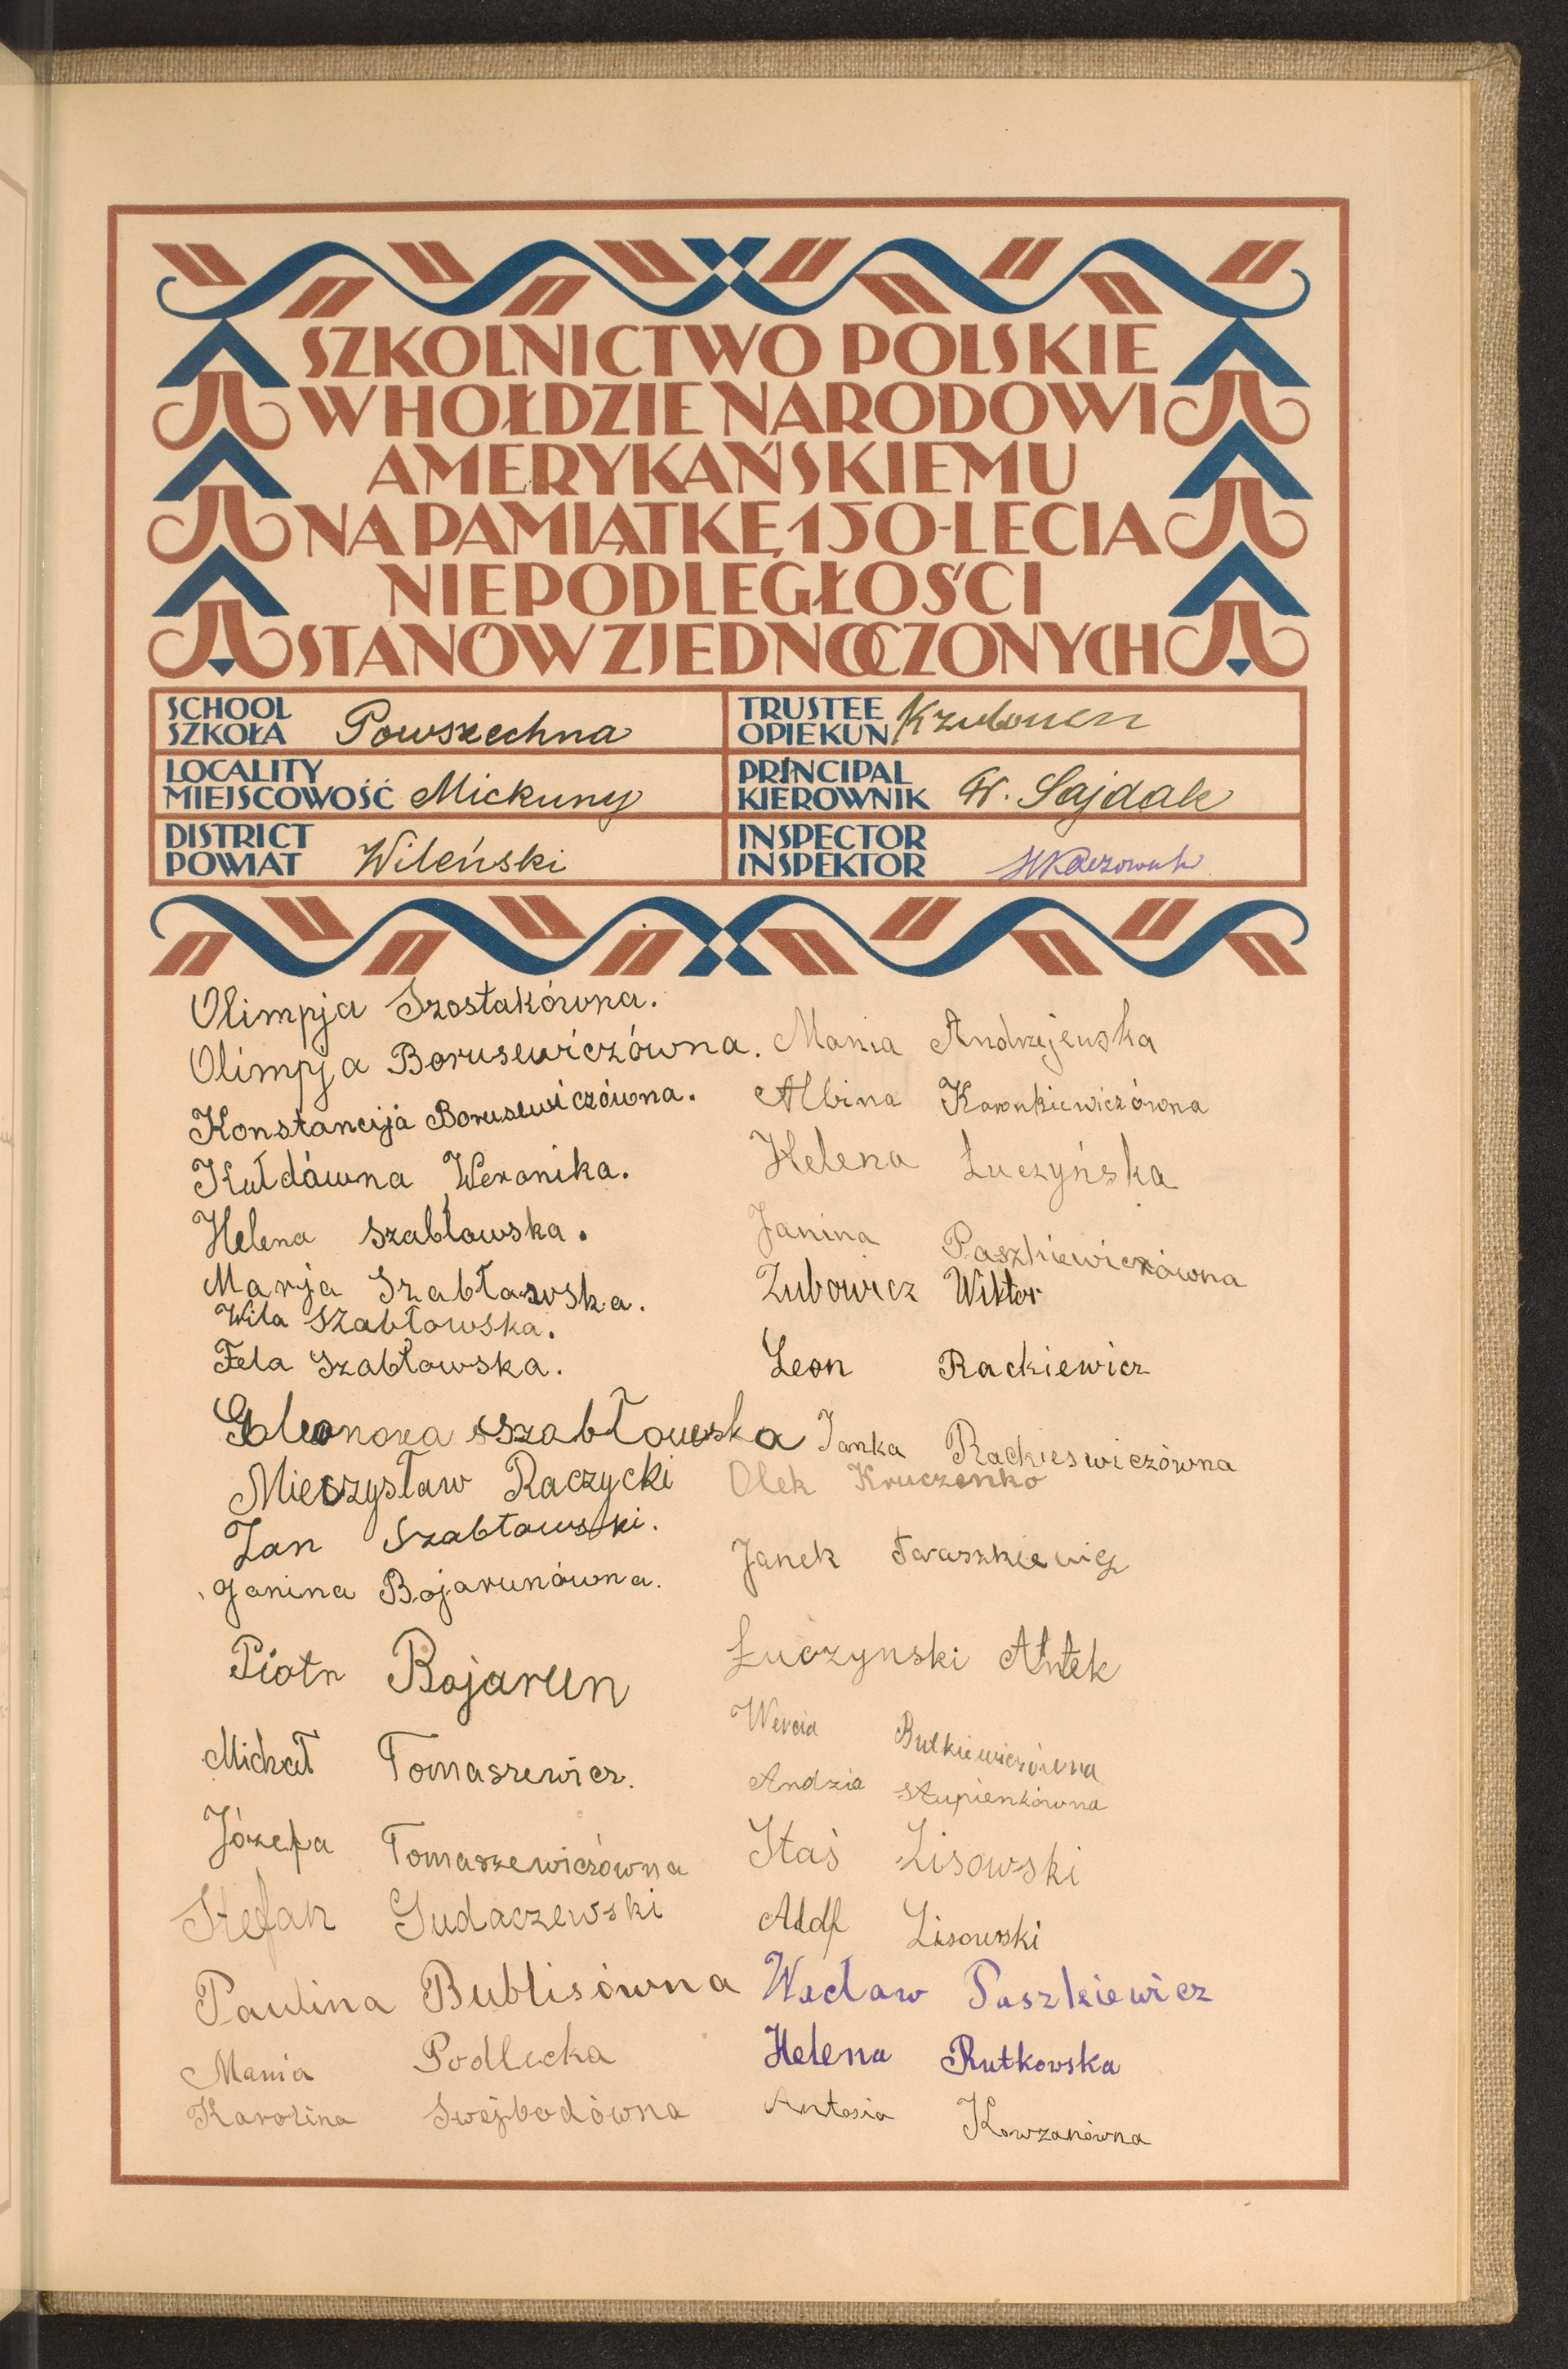 SZKOLNICTWO POLSKIE
W HOŁDZIE NARODOWI
AMERYKAŃSKIEMU
NA PAMIĄTKĘ 150-LECIA
NIEPODLEGŁOŚCI
STANÓW ZJEDNOCZONYCH
SCHOOL
SZKOŁA Powszechna
TRUSTEE
OPIEKUN
LOCALITY
MIEJSCOWOŚĆ Mickuny
PRINCIPAL
KIEROWNIK W. Sajdak
DISTRICT
POWIAT Wileński
INSPECTOR
INSPEKTOR
Olimpja Szostakówna.
Olimpja Borusewiczówna.
Konstancija Borusewiczówna.
Kułdáwna Weronika.
Helena Szabłowska.
Marja Szabłowska.
Wila Szabłowska.
Fela Szabłowska.
Eleonora Szabłowska
Mieczysław Raczycki
Jan Szabłowski.
Janina Bojarunówna.
Piotr Bojarun
Michał Tomaszewicz.
Józefa Tomaszewiczówna
Stefan Gudaczewski
Paulina Bublisówna
Mania Podlecka
Karolina Swejbodówna
Mania Andrzejewska
Albina Koronkiewiczówna
Helena Łuczyńska
Janina Paszkiewiczówna
Zubowicz Wiktor
Leon Rackiewicz
Janka Rackieswiczówna
Olek Kruczenko
Janek Taraszkiewicz
Łuczynski Antek
Wercia Butkiewiczówna
Andzia Stupienkówna
Staś Lisowski
Adolf Lisowski
Wacław Paszkiewicz
Helena Rutkowska
Antosia Kowzanówna